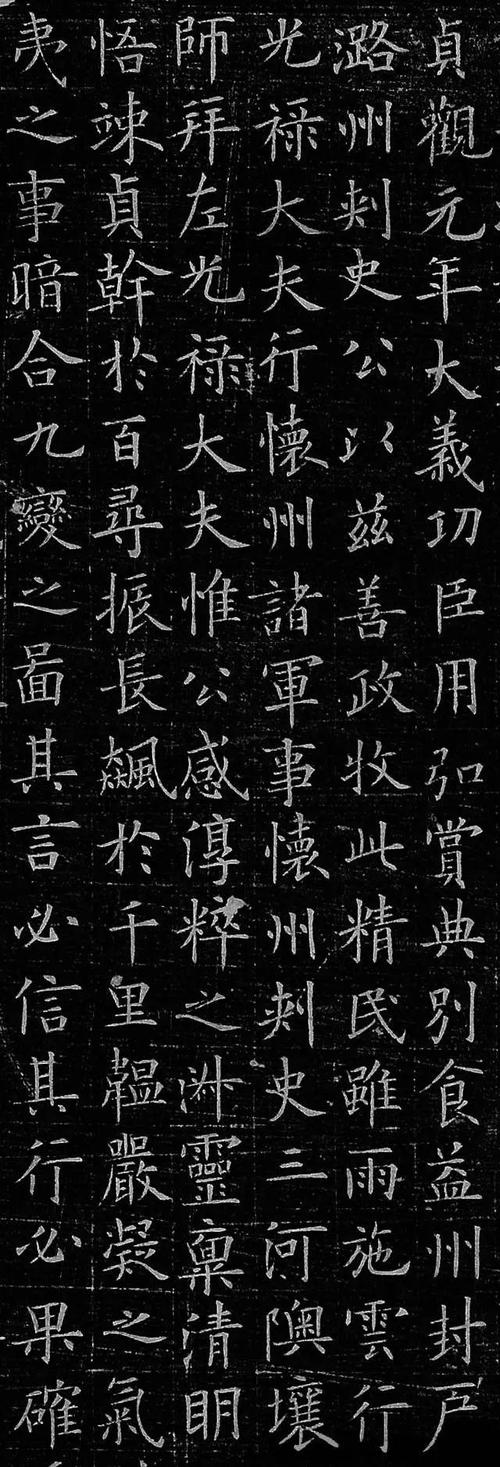 貞觀元年大義功臣用弘賞典別食益州封戶
潞州刺史公以茲善政牧此精民雖雨施雲行
光祿大夫行懷州諸軍事懷州刺史三河隩壤
師拜左光祿大夫惟公感淳粹之淋靈稟清明
悟竦貞幹於百尋振長飆於千里韞嚴凝之氣
夷之事暗合九變之啚其言必信其行必果確